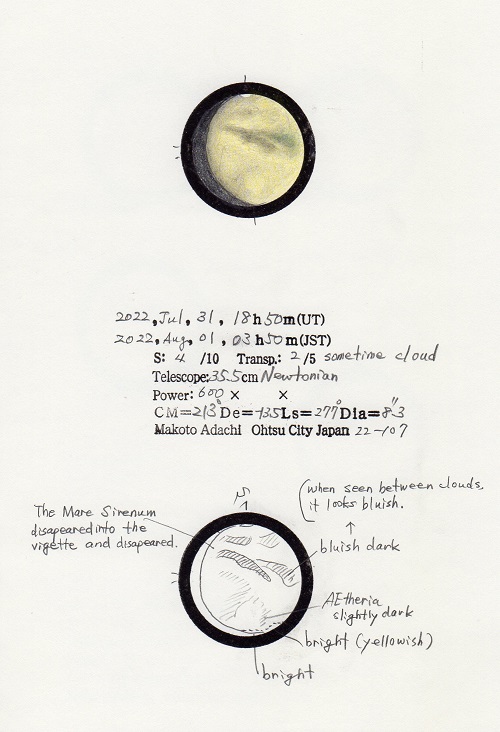 2022, Jul, 31, 18h50m(UT)
2022, Aug, 01, 03h50m(JST)
S: 4 /10 Transp.: 2/5 sometime cloud
Telescope:35.5cm Newtonian
Power: 600 × ×
CM=213°De=-13.5Ls=277°Dia=8"3
Makoto Adachi Ohtsu City Japan 22-107
S
(when seen between clouds,
it looks bluish.
The Mare Sirenum
disapeared into the
vigette and disapeared.
bluish dark
AEtheria
slightly dark
bright (yellowish)
bright